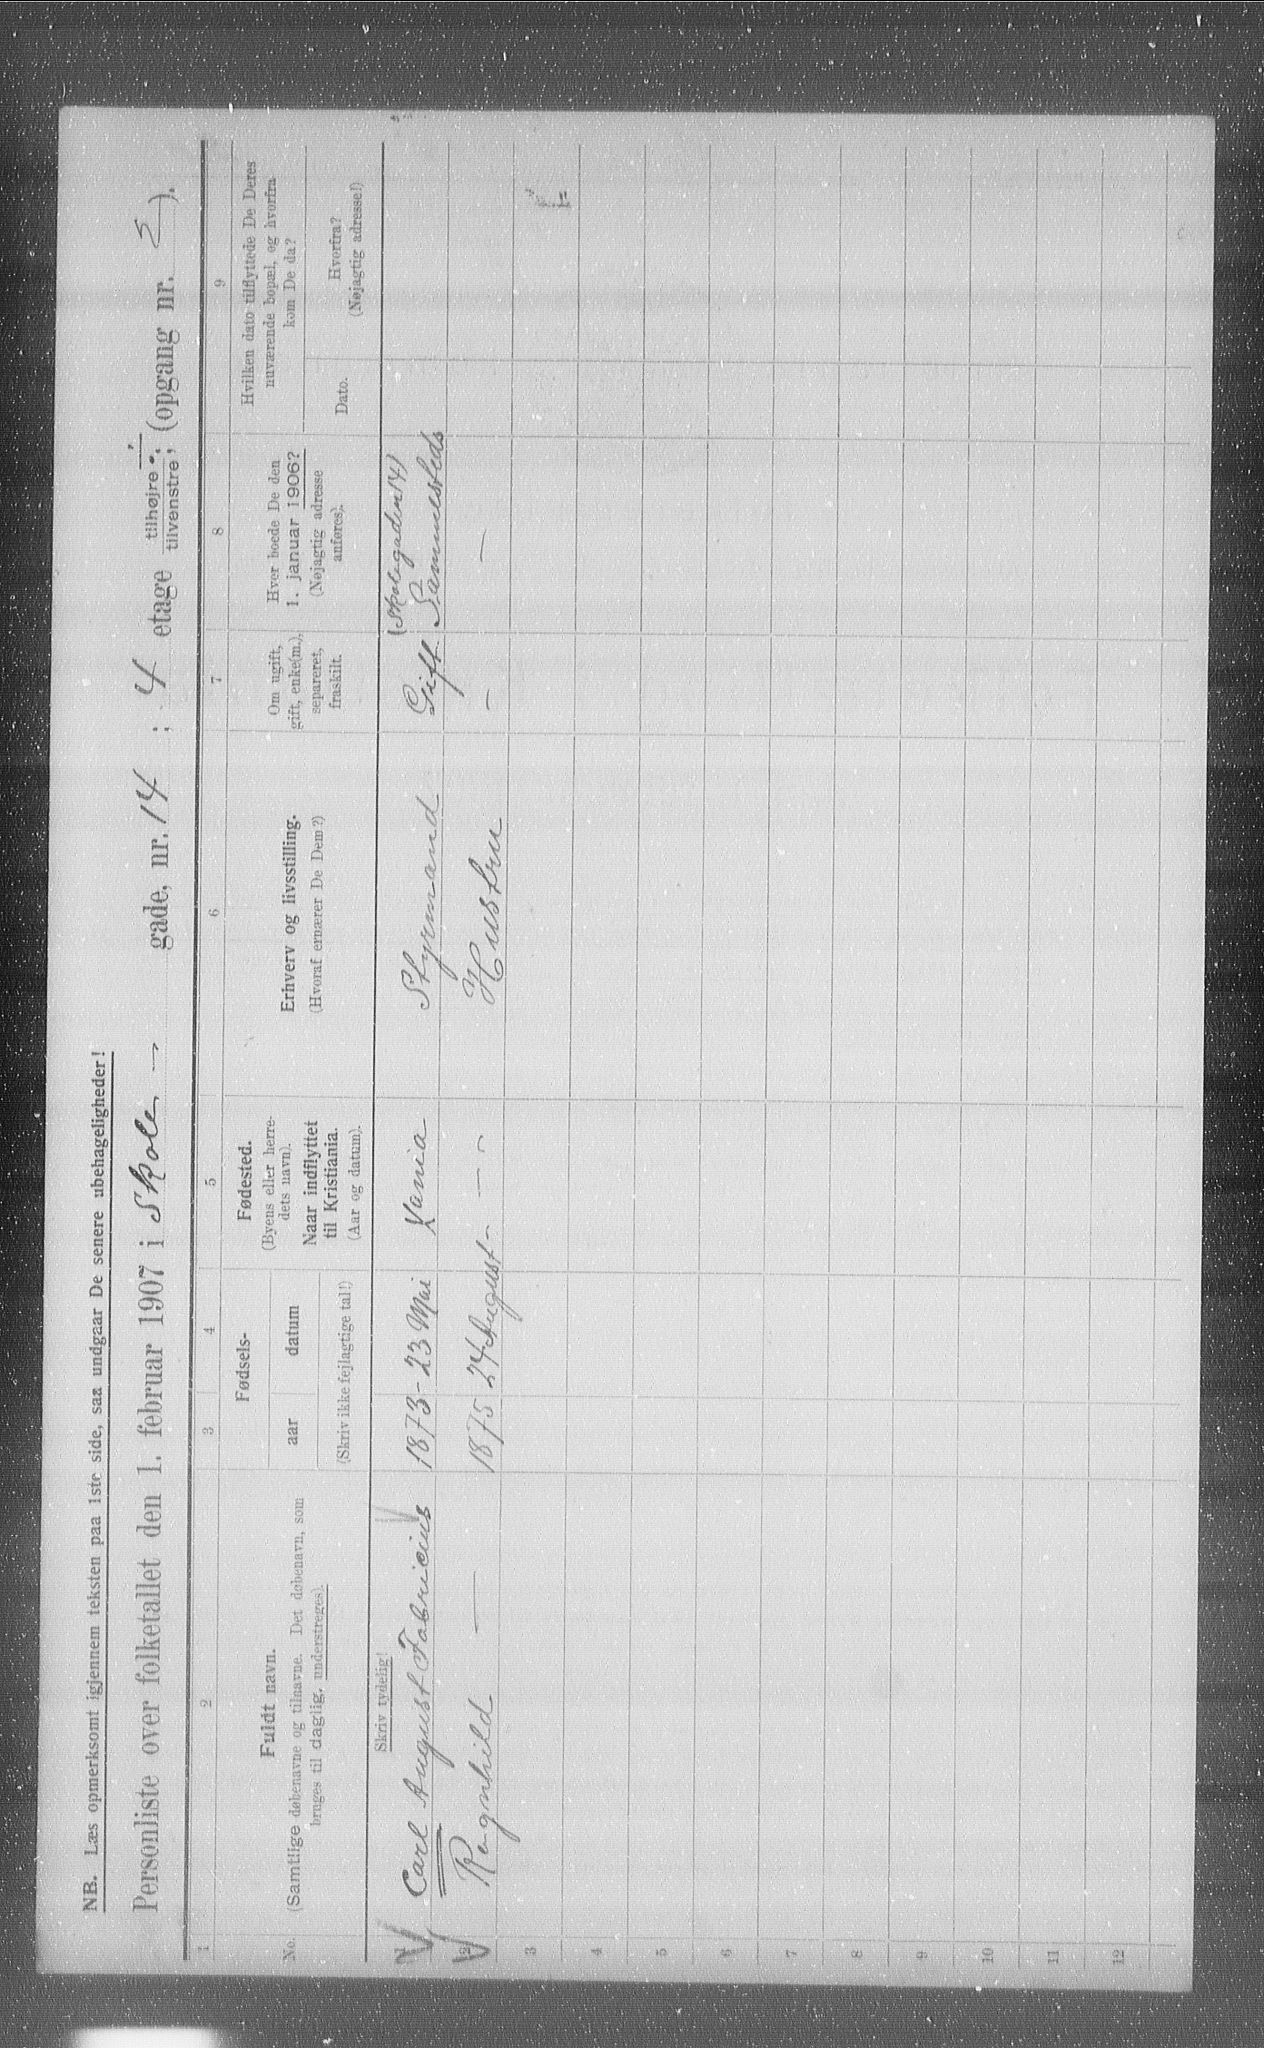 NB. Læs opmerksomt igjennem teksten paa 1ste side, saa undgaar De senere ubehageligheder!
Personliste over folketallet den 1. februar 1907 i Skole - gade, nr. 14 ; 4 etage tilhøjre tilvenstre; (opgang nr. 2 ).
1 2 3 4 5 6 7 8 9
No.
Fuldt navn.
(Samtlige døbenavne og tilnavne. Det døbenavn, som
bruges til daglig, understreges).
Fødsels-
aar datum
(Skriv ikke fejlagtige tal!)
Fødested.
(Byens eller herre-
dets navn).
Naar indflyttet
til Kristiania.
(Aar og datum).
Erhverv og livsstilling.
(Hvoraf ernærer De Dem?)
Om ugift,
gift, enke(m.),
separeret,
fraskilt.
Hvor boede De den
1. januar 1906?
(Nøjagtig adresse
anføres).
Hvilken dato tilflyttede De Deres
nuværende bopæl, og hvorfra
kom De da?
Dato.
Hvorfra?
(Nøjagtig adresse!)
Skriv tydelig!
(Skolegaden 14)
1 Carl August Fabricius 1873 - 23 Mai Xania Styrmand Gift Sammesteds
2 Ragnhild — 1875 24 August - — - Hustru - —
3
4
5
6
7
8
9
10
11
12